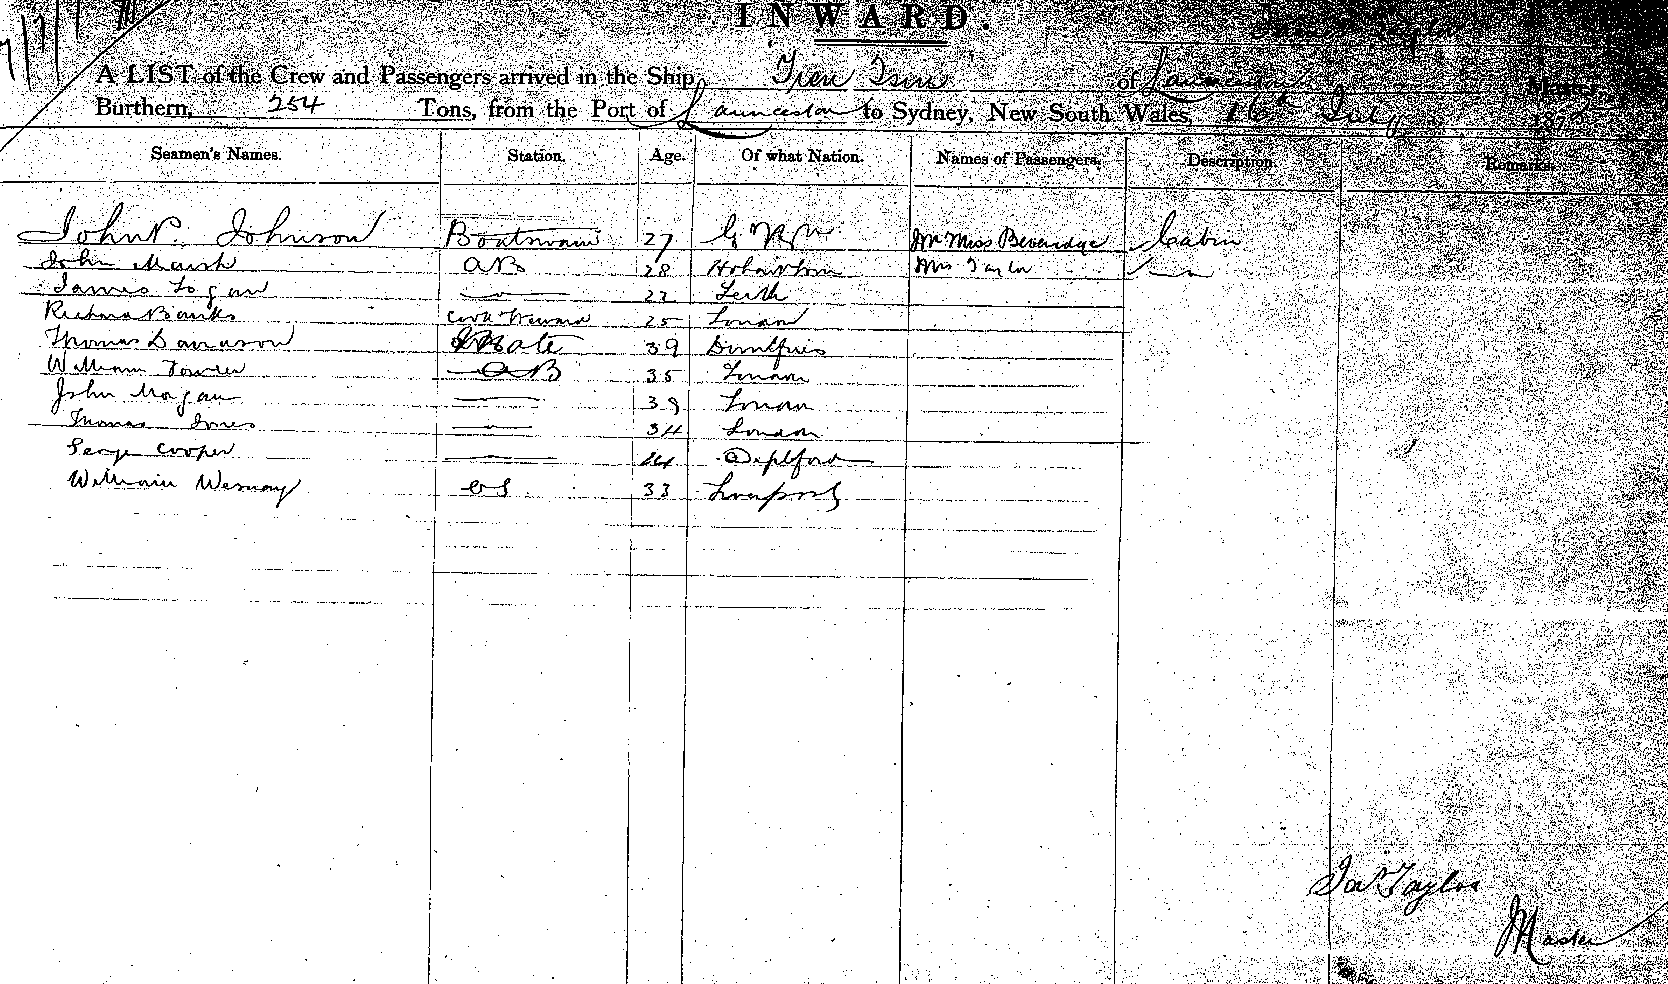 INWARD.
A LIST of the Crew and Passengers arrived in the Ship, of Launceston Master,
Burthern, 254 Tons, from the Port of Launceston to Sydney, New South Wales, 16th July 187
Seamen's Names. Station. Age. Of what Nation. Names of Passengers. Description. Remarks.
John P. Johnson Boatswain 27 Mr Miss Beveridge Cabin
John Marsh AB 28 Hobart Town Mrs Taylor
James Logan 22 Leith
Richard Banks Cook Steward 25 London
Thomas Mate 39 Dumfries
William AB 35 London
John Morgan London
Thomas Jones 34 London
George Cooper 44 Deptford
William OS 33 Liverpool
Jas Taylor
Master